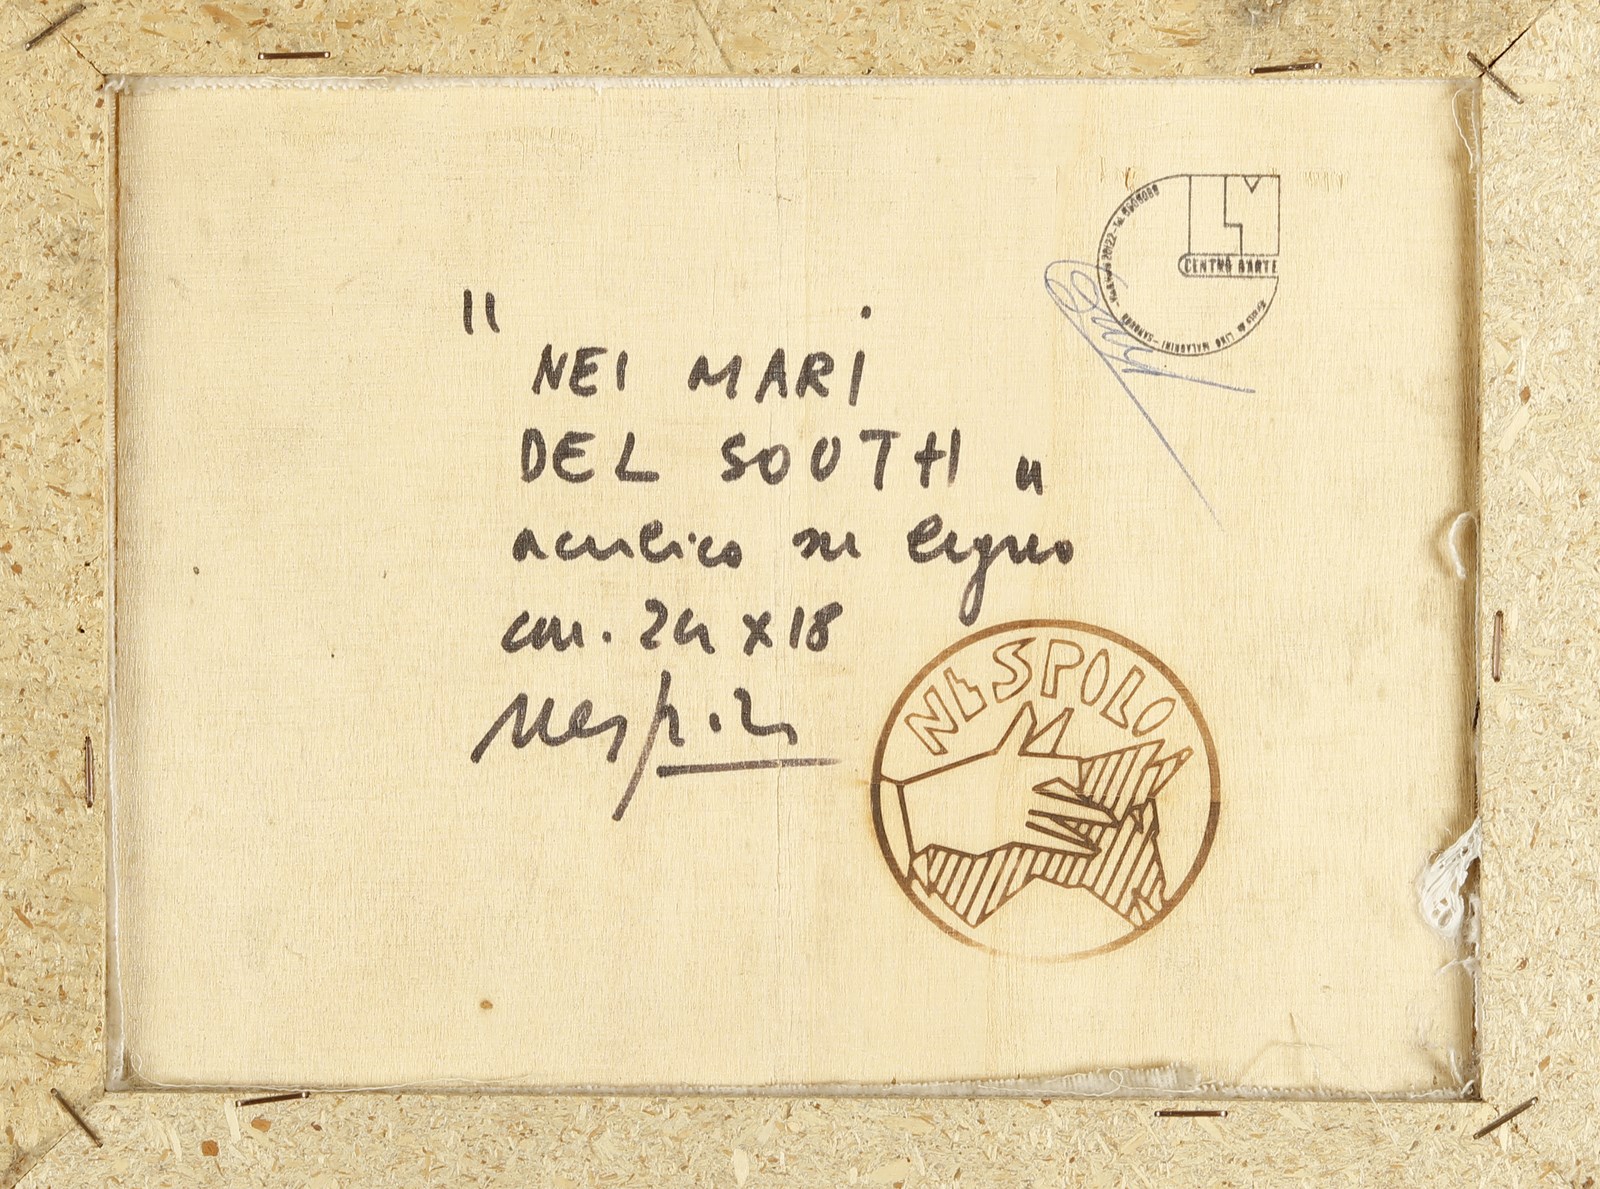 "NEI MARI
DEL SOUTH"
acrilico su legno
cm. 24 x 18
Nespolo
NESPOLO
LM
CENTRO D'ARTE
LINO MALAGRINI - SANGUIN